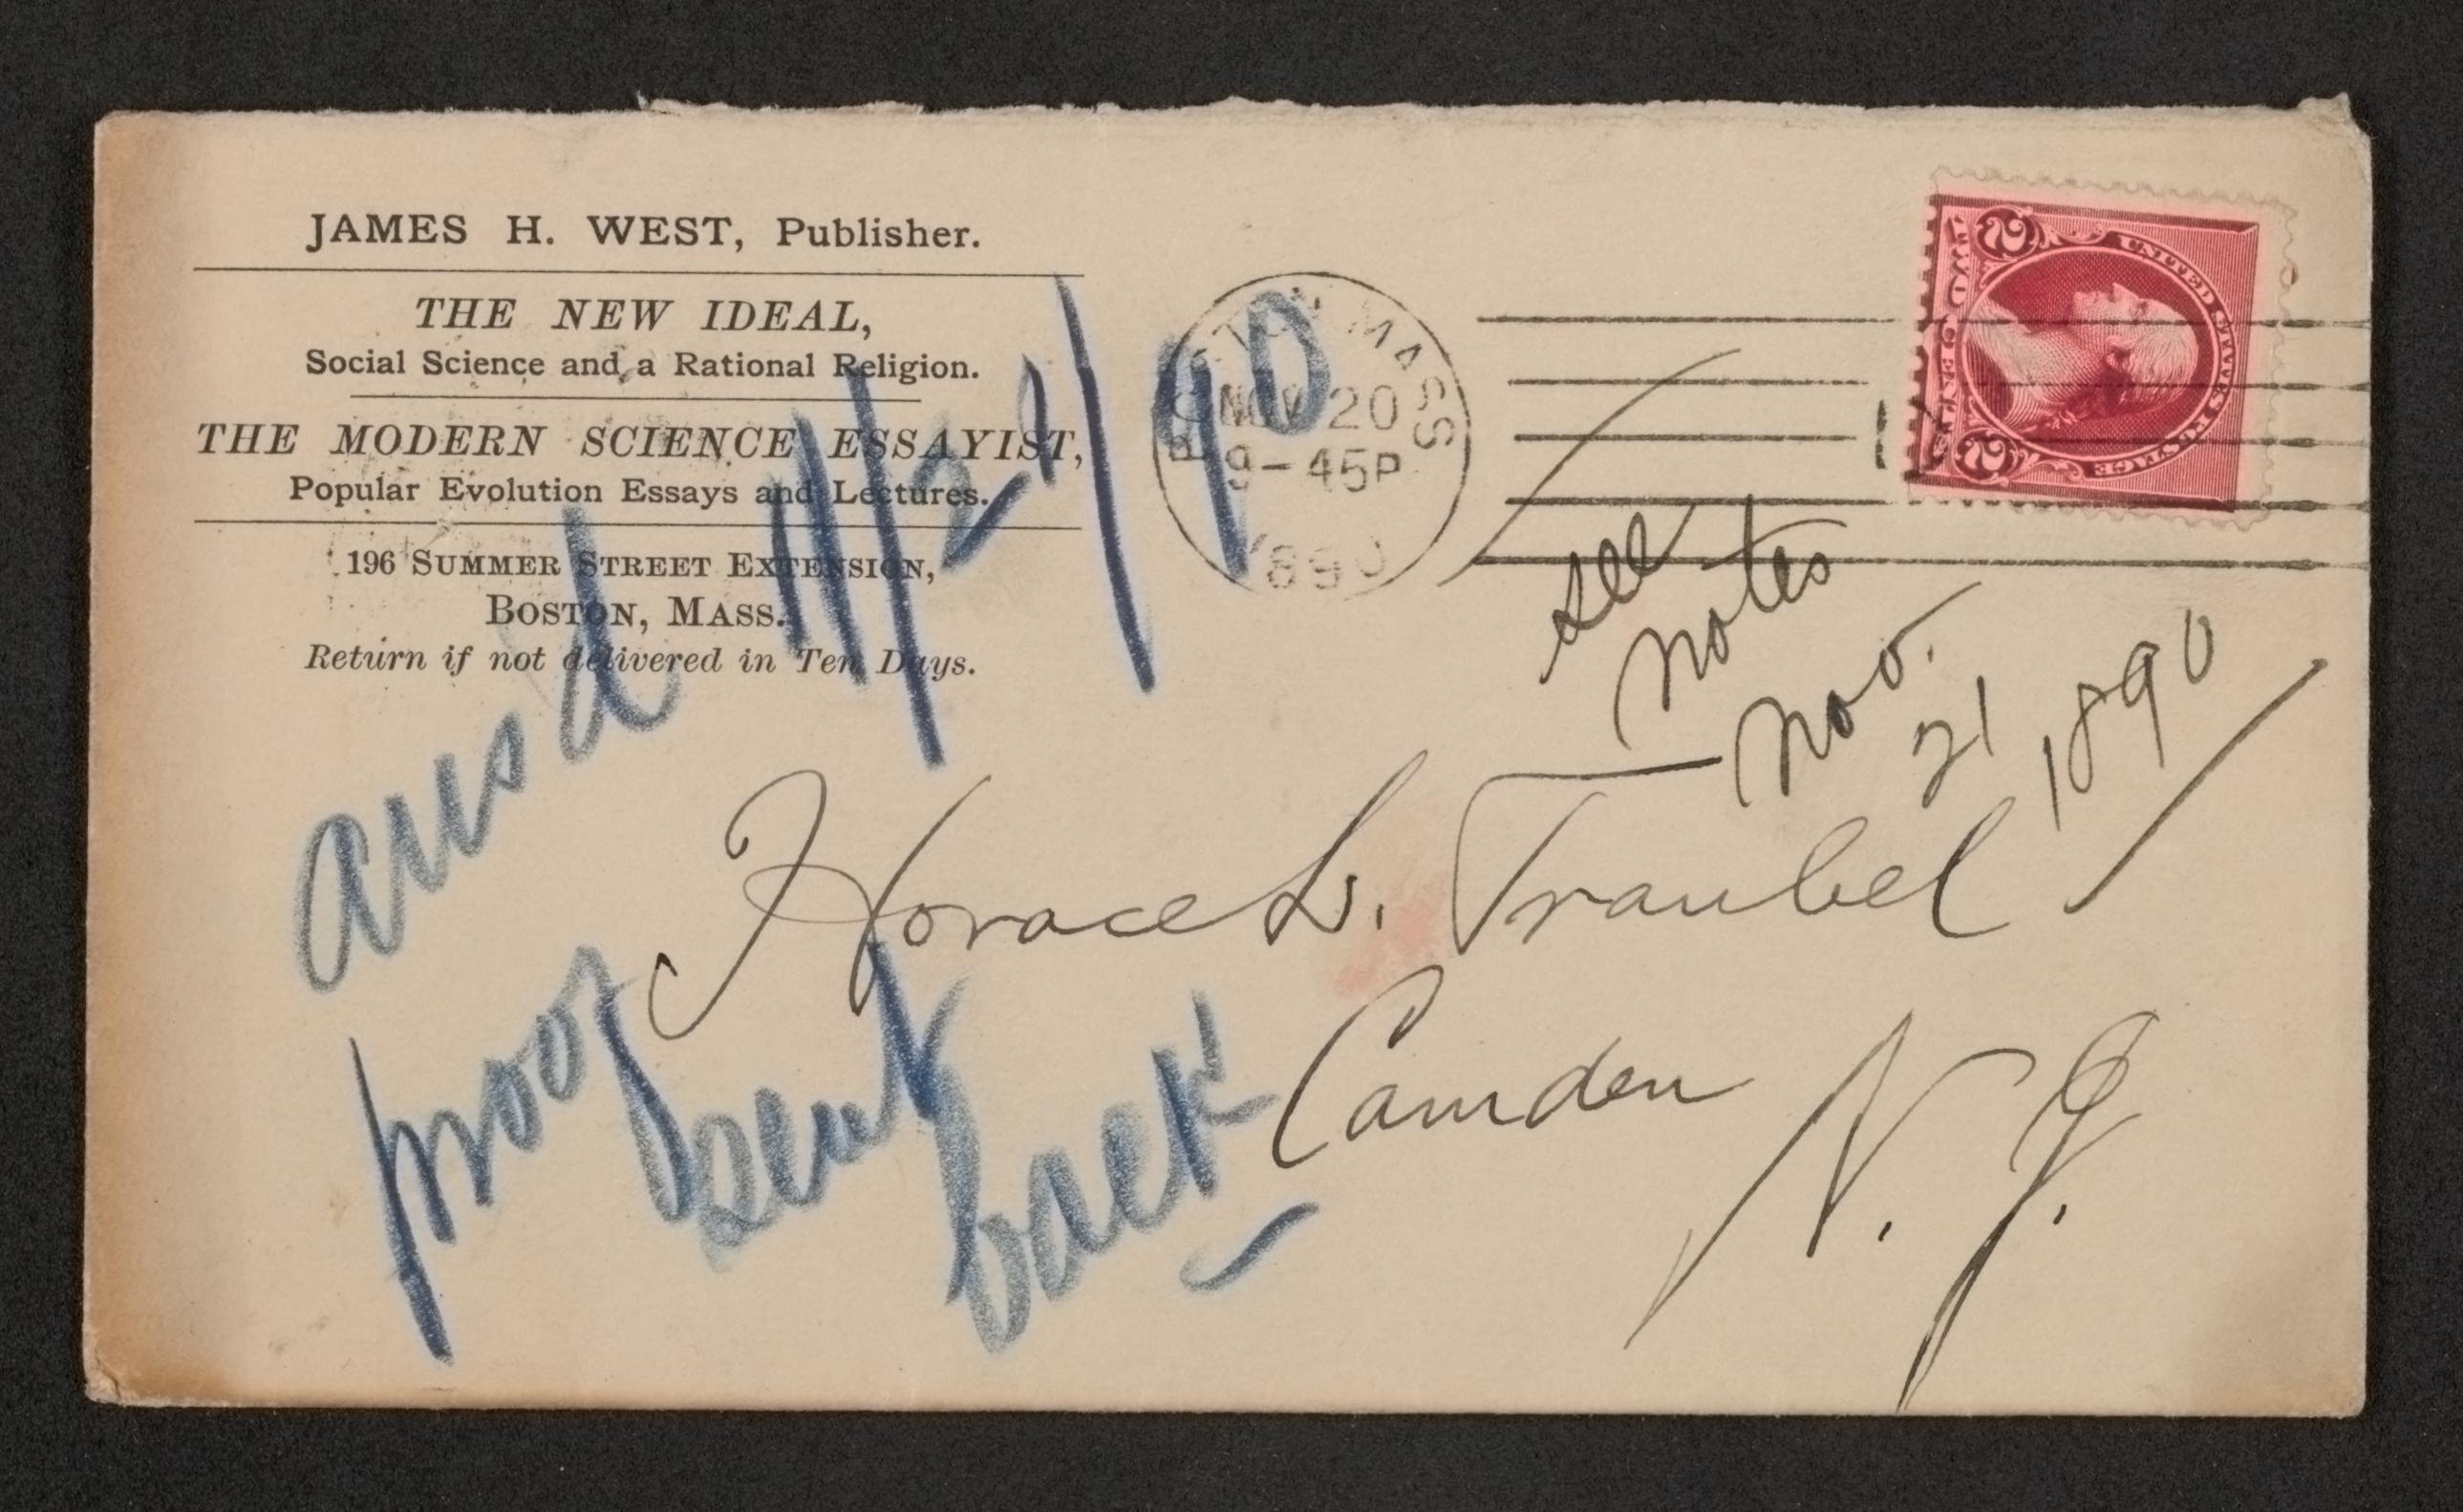 JAMES H. WEST, Publisher.
THE NEW IDEAL,
Social Science and a Rational Religion.
THE MODERN SCIENCE ESSAYIST,
Popular Evolution Essays and Lectures.
196 SUMMER STREET EXTENSION,
BOSTON, MASS.
Return if not delivered in Ten Days.
BOSTON MASS
NOV 20
9-45P
1890
1
2 2
UNITED STATES POSTAGE
TWO CENTS
see
notes
Nov.
21
1890
ansd 11/21/90
proof
sent
back
Horace L. Traubel
Camden
N. J.